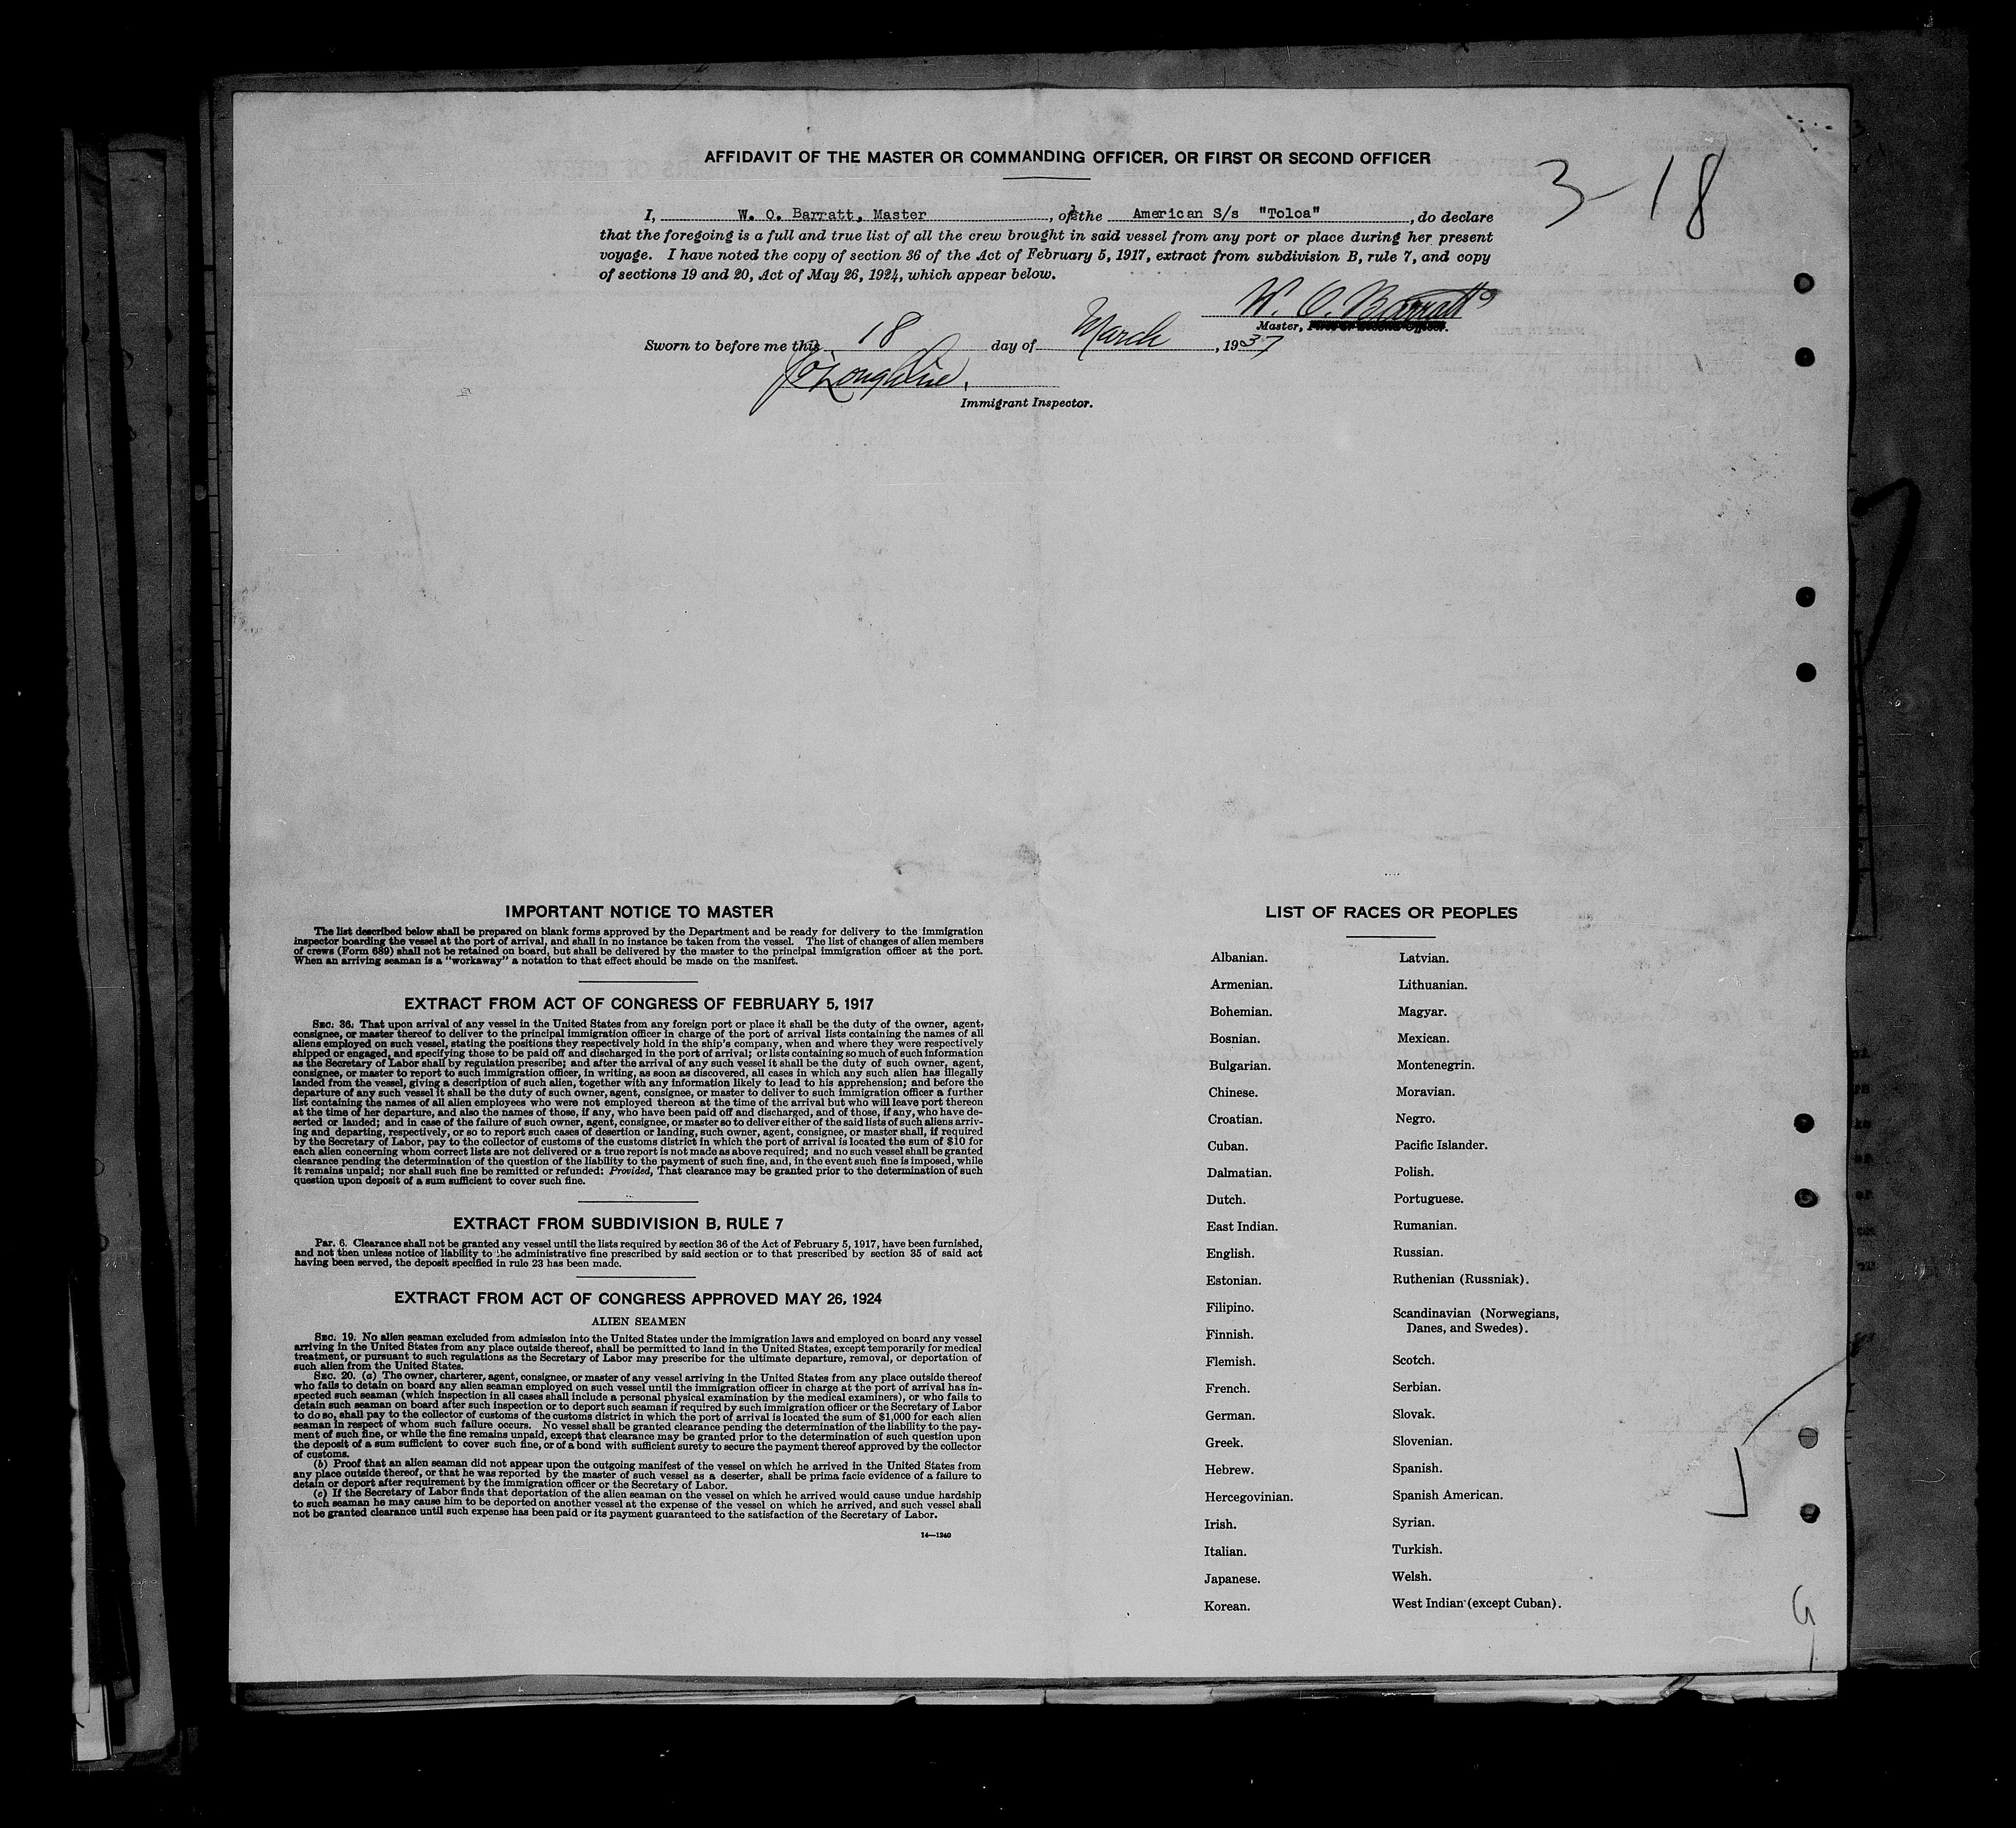 AFFIDAVIT OF THE MASTER OR COMMANDING OFFICER, OR FIRST OR SECOND OFFICER
3-18
I, W. O. Barratt, Master, of the American S/s "Toloa", do declare
that the foregoing is a full and true list of all the crew brought in said vessel from any port or place during her present
voyage. I have noted the copy of section 36 of the Act of February 5, 1917, extract from subdivision B, rule 7, and copy
of sections 19 and 20, Act of May 26, 1924, which appear below.
W. O. Barratt
Master,
Sworn to before me this 18 day of March, 1937
Immigrant Inspector.
IMPORTANT NOTICE TO MASTER
The list described below shall be prepared on blank forms approved by the Department and be ready for delivery to the immigration
inspector boarding the vessel at the port of arrival, and shall in no instance be taken from the vessel. The list of changes of alien members
of crews (Form 689) shall not be retained on board, but shall be delivered by the master to the principal immigration officer at the port.
When an arriving seaman is a "workaway" a notation to that effect should be made on the manifest.
EXTRACT FROM ACT OF CONGRESS OF FEBRUARY 5, 1917
SEC. 36. That upon arrival of any vessel in the United States from any foreign port or place it shall be the duty of the owner, agent,
consignee, or master thereof to deliver to the principal immigration officer in charge of the port of arrival lists containing the names of all
aliens employed on such vessel, stating the positions they respectively hold in the ship's company, when and where they were respectively
shipped or engaged, and specifying those to be paid off and discharged in the port of arrival; or lists containing so much of such information
as the Secretary of Labor shall by regulation prescribe; and after the arrival of any such vessel it shall be the duty of such owner, agent,
consignee, or master to report to such immigration officer, in writing, as soon as discovered, all cases in which any such alien has illegally
landed from the vessel, giving a description of such alien, together with any information likely to lead to his apprehension; and before the
departure of any such vessel it shall be the duty of such owner, agent, consignee, or master to deliver to such immigration officer a further
list containing the names of all alien employees who were not employed thereon at the time of the arrival but who will leave port thereon
at the time of her departure, and also the names of those, if any, who have been paid off and discharged, and of those, if any, who have de-
serted or landed; and in case of the failure of such owner, agent, consignee, or master so to deliver either of the said lists of such aliens arriv-
ing and departing, respectively, or so to report such cases of desertion or landing, such owner, agent, consignee, or master shall, if required
by the Secretary of Labor, pay to the collector of customs of the customs district in which the port of arrival is located the sum of $10 for
each alien concerning whom correct lists are not delivered or a true report is not made as above required; and no such vessel shall be granted
clearance pending the determination of the question of the liability to the payment of such fine, and, in the event such fine is imposed, while
it remains unpaid; nor shall such fine be remitted or refunded: Provided, That clearance may be granted prior to the determination of such
question upon deposit of a sum sufficient to cover such fine.
EXTRACT FROM SUBDIVISION B, RULE 7
Par. 6. Clearance shall not be granted any vessel until the lists required by section 36 of the Act of February 5, 1917, have been furnished,
and not then unless notice of liability to the administrative fine prescribed by said section or to that prescribed by section 35 of said act
having been served, the deposit specified in rule 23 has been made.
EXTRACT FROM ACT OF CONGRESS APPROVED MAY 26, 1924
ALIEN SEAMEN
SEC. 19. No alien seaman excluded from admission into the United States under the immigration laws and employed on board any vessel
arriving in the United States from any place outside thereof, shall be permitted to land in the United States, except temporarily for medical
treatment, or pursuant to such regulations as the Secretary of Labor may prescribe for the ultimate departure, removal, or deportation of
such alien from the United States.
SEC. 20. (a) The owner, charterer, agent, consignee, or master of any vessel arriving in the United States from any place outside thereof
who fails to detain on board any alien seaman employed on such vessel until the immigration officer in charge at the port of arrival has in-
spected such seaman (which inspection in all cases shall include a personal physical examination by the medical examiners), or who fails to
detain such seaman on board after such inspection or to deport such seaman if required by such immigration officer or the Secretary of Labor
to do so, shall pay to the collector of customs of the customs district in which the port of arrival is located the sum of $1,000 for each alien
seaman in respect of whom such failure occurs. No vessel shall be granted clearance pending the determination of the liability to the pay-
ment of such fine, or while the fine remains unpaid, except that clearance may be granted prior to the determination of such question upon
the deposit of a sum sufficient to cover such fine, or of a bond with sufficient surety to secure the payment thereof approved by the collector
of customs.
(b) Proof that an alien seaman did not appear upon the outgoing manifest of the vessel on which he arrived in the United States from
any place outside thereof, or that he was reported by the master of such vessel as a deserter, shall be prima facie evidence of a failure to
detain or deport after requirement by the immigration officer or the Secretary of Labor.
(c) If the Secretary of Labor finds that deportation of the alien seaman on the vessel on which he arrived would cause undue hardship
to such seaman he may cause him to be deported on another vessel at the expense of the vessel on which he arrived, and such vessel shall
not be granted clearance until such expense has been paid or its payment guaranteed to the satisfaction of the Secretary of Labor.
14—1240
LIST OF RACES OR PEOPLES
Albanian.
Armenian.
Bohemian.
Bosnian.
Bulgarian.
Chinese.
Croatian.
Cuban.
Dalmatian.
Dutch.
East Indian.
English.
Estonian.
Filipino.
Finnish.
Flemish.
French.
German.
Greek.
Hebrew.
Hercegovinian.
Irish.
Italian.
Japanese.
Korean.
Latvian.
Lithuanian.
Magyar.
Mexican.
Montenegrin.
Moravian.
Negro.
Pacific Islander.
Polish.
Portuguese.
Rumanian.
Russian.
Ruthenian (Russniak).
Scandinavian (Norwegians,
Danes, and Swedes).
Scotch.
Serbian.
Slovak.
Slovenian.
Spanish.
Spanish American.
Syrian.
Turkish.
Welsh.
West Indian (except Cuban).